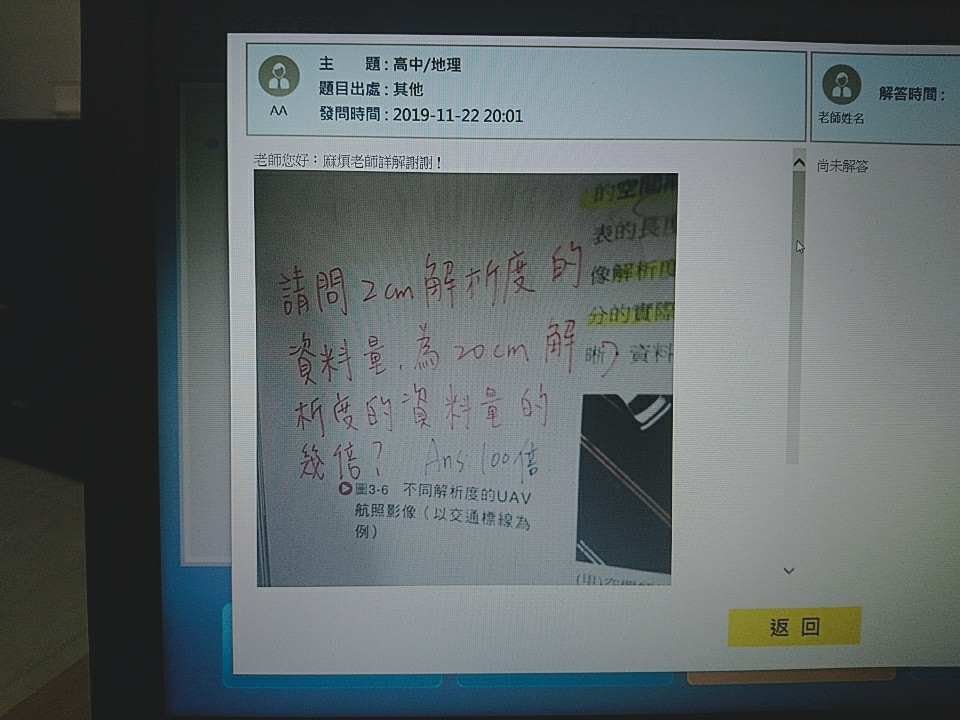 主 題 : 高中/地理
題目出處 : 其他
發問時間 : 2019-11-22 20:01
AA
解答時間 :
老師姓名
老師您好：麻煩老師詳解謝謝！
尚未解答
請問2cm解析度的
資料量，為20cm解
析度的資料量的
幾倍？ Ans 100倍
的空間
表的長度
像解析度
分的實際
晰） 資料
圖3-6 不同解析度的UAV
航照影像（以交通標線為
例）
返 回